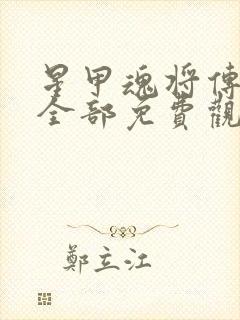 星甲魂將傳
全部免費觀
鄭立江